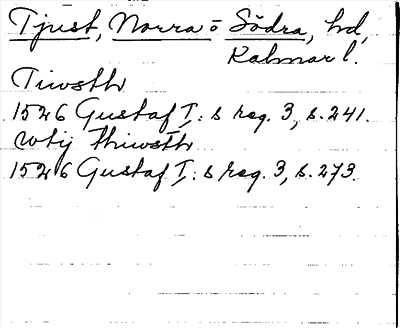 Tjust, Norra o Södra, hd,
Kalmar l.
Tiwsth
1526 Gustaf I: s reg. 3, s. 241.
wtij thiwsth
1526 Gustaf I: s reg. 3, s. 273.